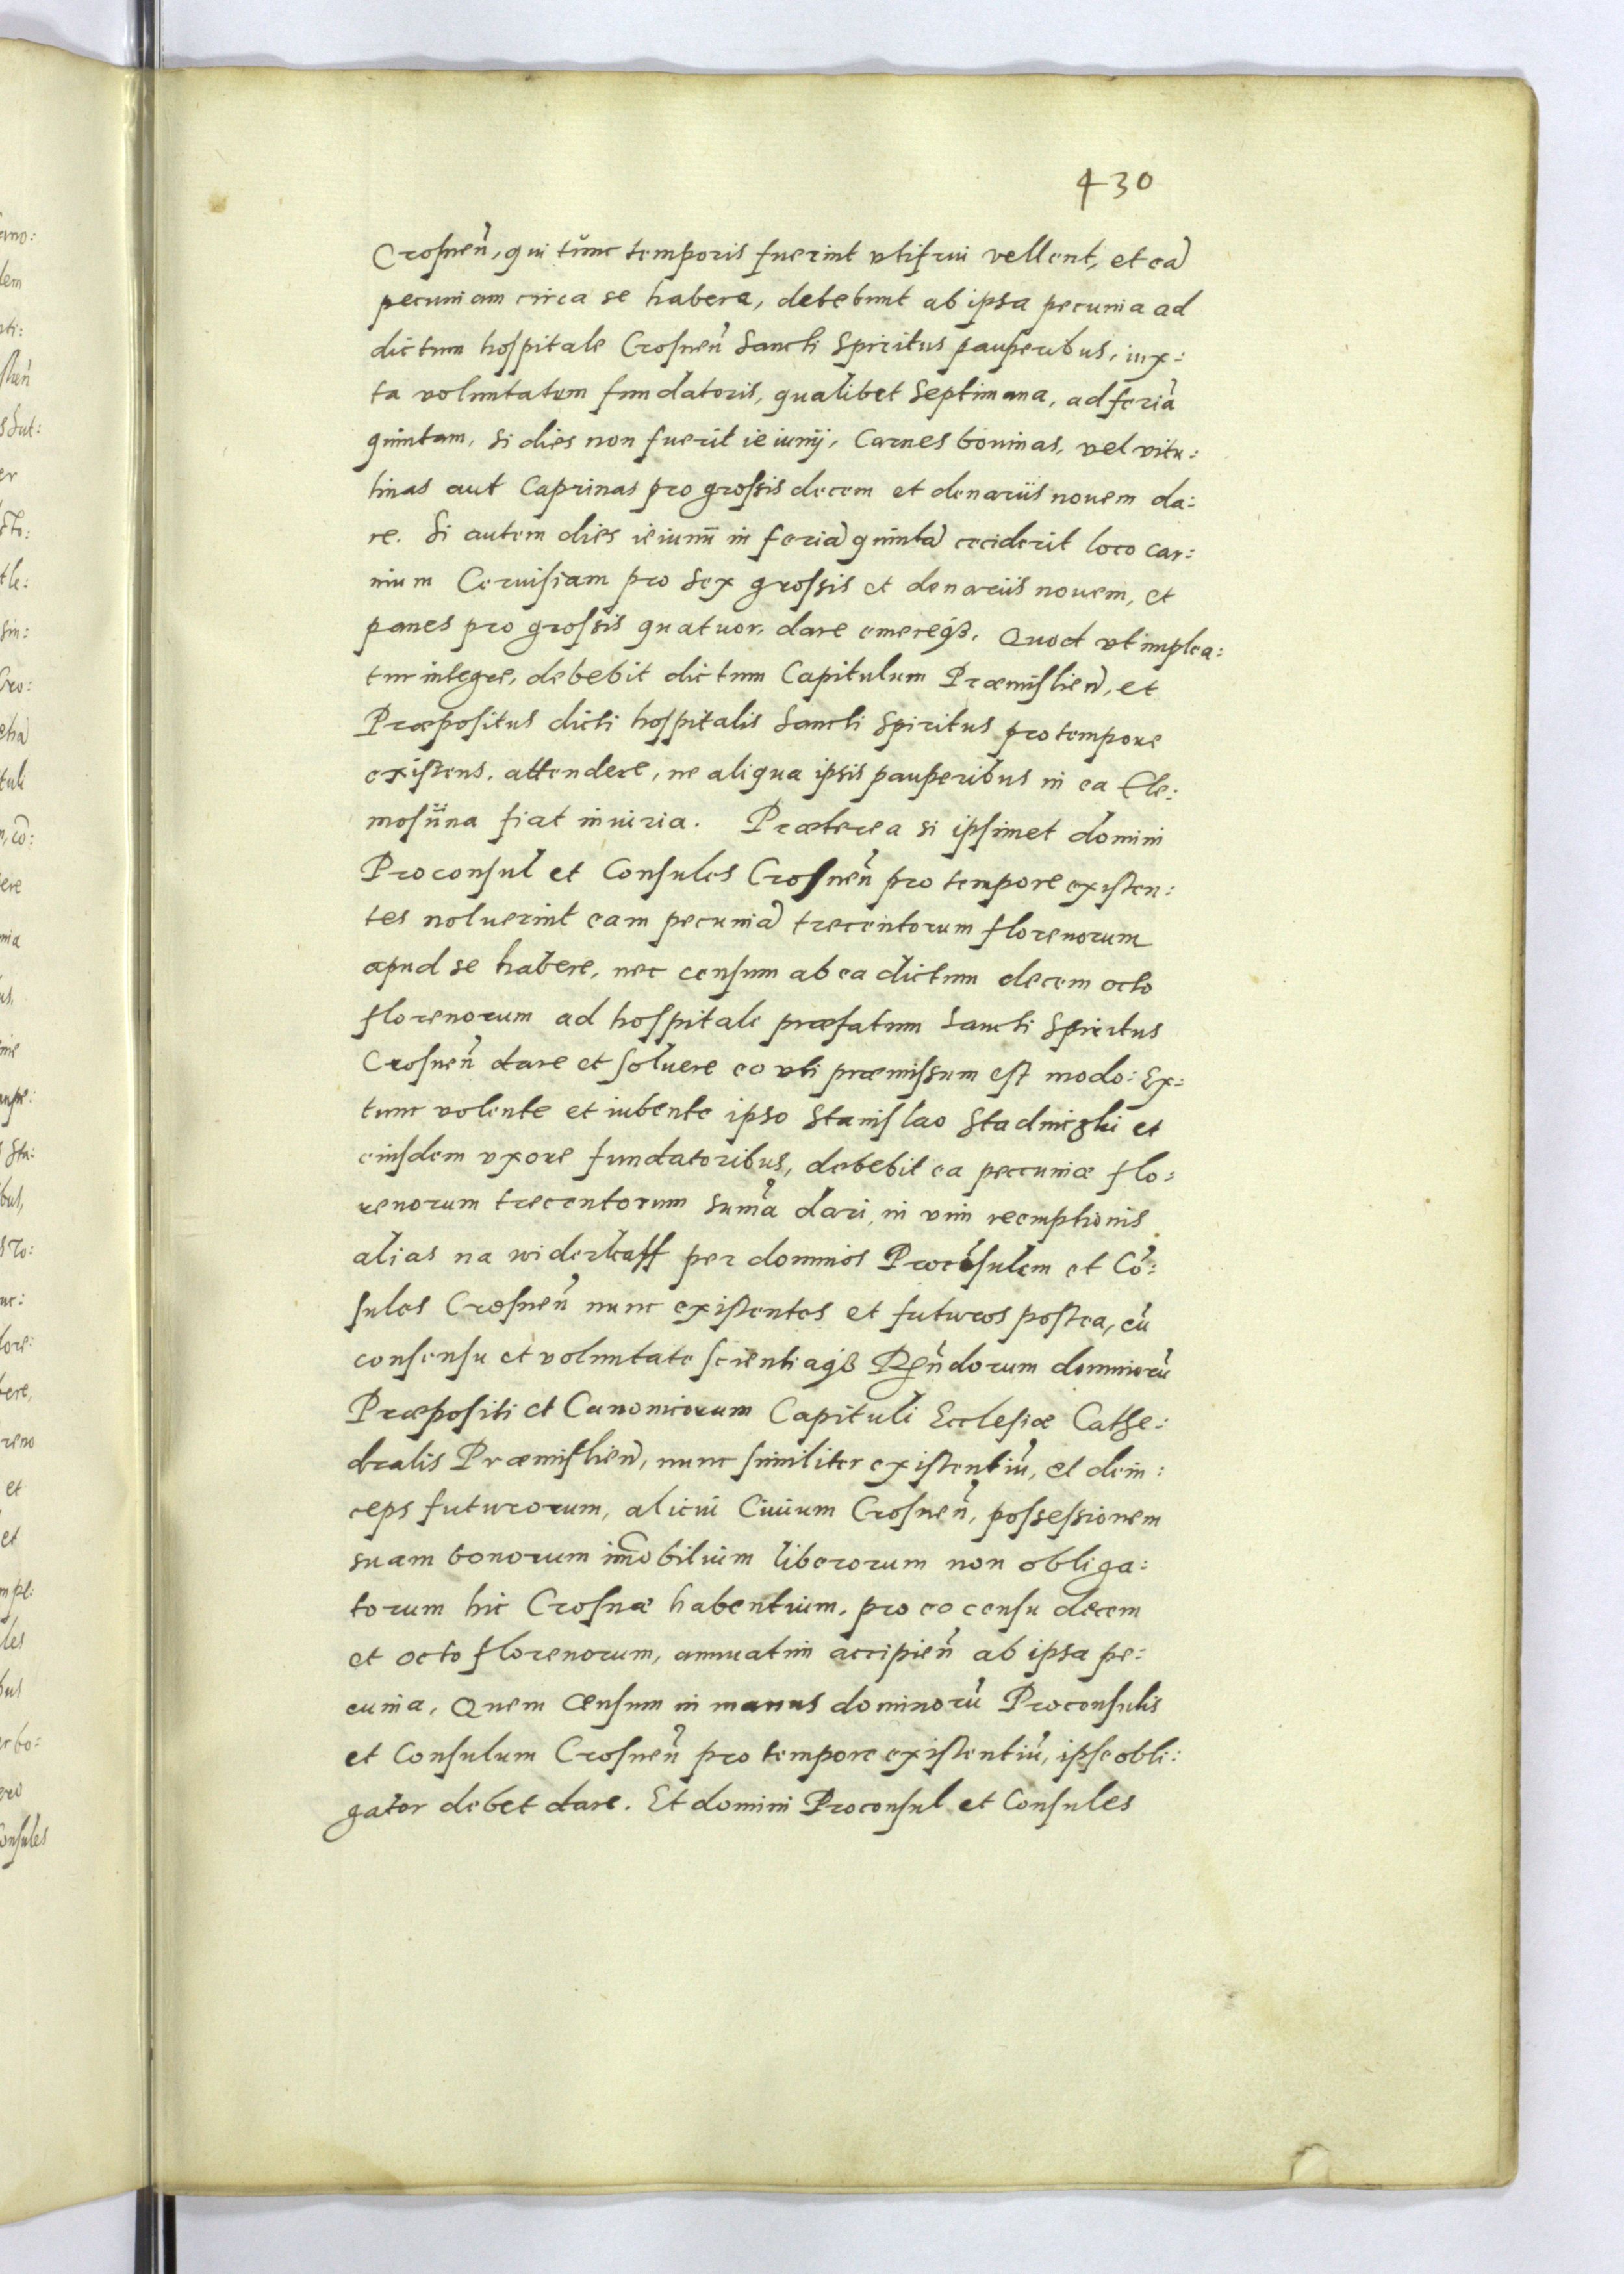 430
Crosnen̄, qui tunc temporis fuerint vtifrui vellent, et eā
pecuniam circa se habere, debebunt ab ipsa pecunia ad
dictum hospitale Crosnen̄ Sancti Spiritus pauperibus, iux:
ta voluntatem fundatoris, qualibet Septimana, ad feriā
quintam, Si dies non fuerit ieiunij, Carnes bouinas, vel vitu:
linas aut Caprinas pro grossis decem et denariis nouem da:
re. Si autem dies ieiunii in feriā quintā ceciderit loco car:
nium Ceruisiam pro Sex grossis et denariis nouem, et
panes pro grossis quatuor, dare emereq3. Quod vt implea:
tur integre, debebit dictum Capitulum Præmislien̄, et
Præpositus dicti hospitalis Sancti Spiritus pro tempore
existens, attendere, ne aliqua ipsis pauperibus in ea Ele:
mosÿna fiat iniuria. Præterea si ipsimet domini
Proconsul et Consules Crosnen̄ pro tempore existen:
tes noluerint eam pecuniā trecentorum florenorum
apud se habere, nec censum ab ea dictum decem octo
florenorum ad hospitale præfatum Sancti Spiritus
Crosnen̄ dare et soluere eo vti præmissum est modo: Ex:
tunc volente et iubente ipso Stanislao Stadniczki et
eiusdem vxore fundatoribus, debebit ea peccuniæ flo:
renorum trecentorum sum̄a dari, in vim reemptionis
alias na widerkaff per dominos Procōsulem et Cō:
sules Crosnen̄ nunc existentes et futuros postea, cū
consensu et voluntate scientiaq3 R̄ndorum dominorū
Præpositi et Canonicorum Capituli Ecclesiæ Cathe:
dralis Præmislien̄, nunc similiter existentiū, et dein:
ceps futurorum, alicui Ciuium Crosnen̄, possessionem
suam bonorum im̄obilium liberorum non obliga:
torum hic Crosnæ habentium, pro eo censu decem
et octo florenorum, annuatim accipien̄ ab ipsa pe:
cunia, Quem Censum in manus dominorū Proconsulis
et Consulum Crosnen̄ pro tempore existentiū, ipse obli:
gator debet dare. Et domini Proconsul et Consules